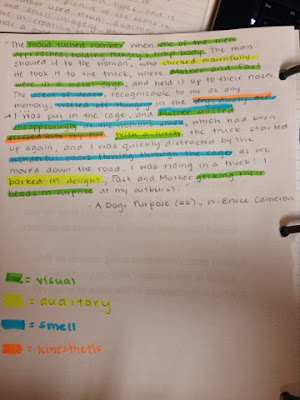 "The mood turned somber when one of the men
approached, holding Hungry's limp body. The man
showed it to the woman, who clucked mournfully.
He took it to the truck, where Mother and Fast
were in a metal cage, and held it up to their noses.
The scent recognizable to me as any
memory, wafted off Hungry in the dry
I was put in the cage, and Mother sniffed
disapprovingly at the woman's smell, which had been
pressed into my fur. With a lurch, the truck started
up again, and I was quickly distracted by the
wonderful odors flowing through the cage as we
moved down the road. I was riding in a truck! I
barked in delight, Fast and Mother jerking their
heads in surprise at my outburst."
- A Dogs Purpose (22), W. Bruce Cameron
= visual
= auditory
= smell
= kinesthetic